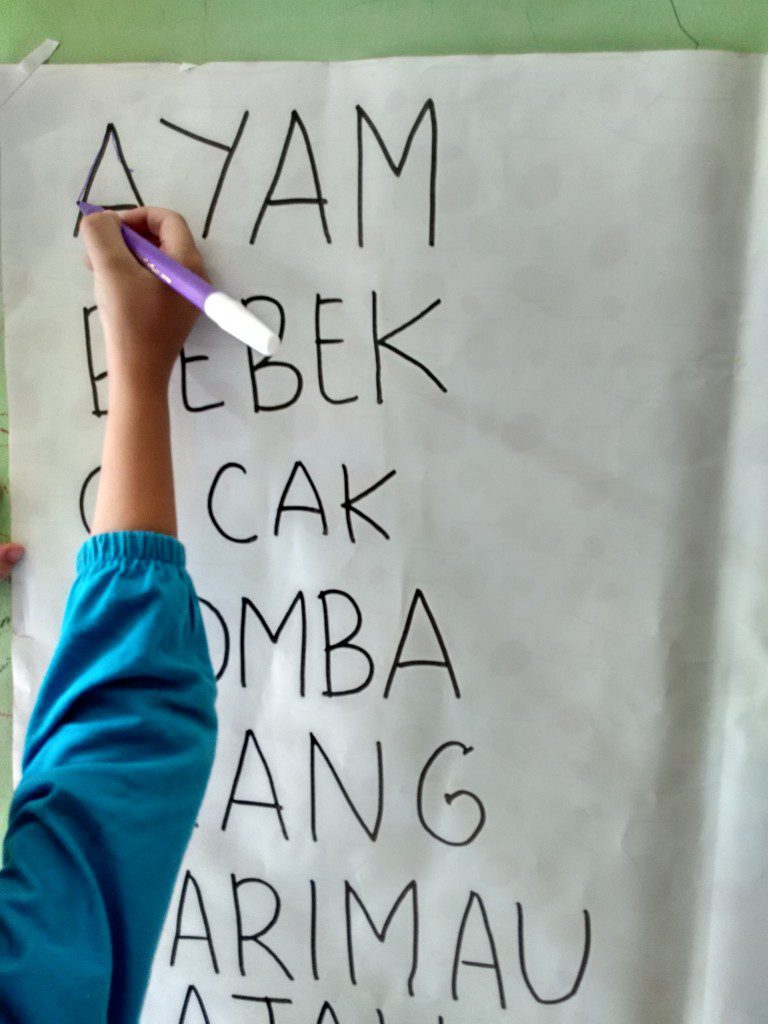 AYAM
BEBEK
C CAK
OMBA
ANG
ARIMAU